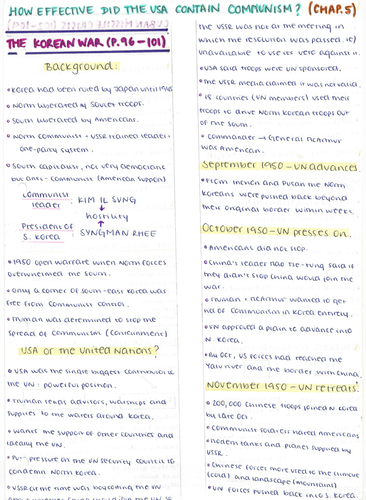 HOW EFFECTIVE DID THE USA CONTAIN COMMUNISM? (CHAP.5)
THE KOREAN WAR (P.96-101)
Background:
• Korea had been ruled by Japan until 1945
• North liberated by Soviet troops.
• South liberated by Americans.
• North communist - USSR trained leader -
one-party system.
• South capitalist, not very democratic
but anti-communist (American support)
Communist
leader: KIM IL SUNG
hostility
President of
S. Korea: SYNGMAN RHEE
• 1950 open warfare when North forces
overwhelmed the South.
• Only a corner of south-east Korea was
free from communist control.
• Truman was determined to stop the
spread of communism (containment)
USA or the United Nations?
• USA was the single biggest contributor to
the UN: powerful position.
• Truman sends advisors, warships and
supplies to the waters around Korea.
• Wants the support of other countries and
ideally the UN.
• Put pressure on the UN security council to
condemn North Korea.
• USSR at the time was boycotting the UN
the USSR was not at the meeting in
which the resolution was passed. ie)
unavailable to use its veto against it.
• USA said troops were UN sponsored.
• The USSR media claimed it was not valid.
• 18 countries (UN members) used their
troops to drive North Korean troops out
of the South.
• Commander → General McArthur
was American.
September 1950 - UN advances
• From Inchon and Pusan the North
Koreans were pushed back beyond
their original border within weeks.
October 1950 - UN presses on.
• Americans did not stop.
• China's leader Mao Tse-tung said if
they didn't stop China would join the
war.
• Truman + McArthur wanted to get
rid of communism in Korea entirely.
• UN approved a plan to advance into
N. Korea.
• By Oct, US forces had reached the
Yalu river and the border with China.
November 1950 - UN retreats.
• 200,000 Chinese troops joined N Korea
by late Oct.
• Communist soldiers hated Americans
• Modern tanks and planes supplied by
USSR.
• Chinese forces more used to the climate
(cold) and landscape (mountains)
• UN forces pushed back into S. Korea.